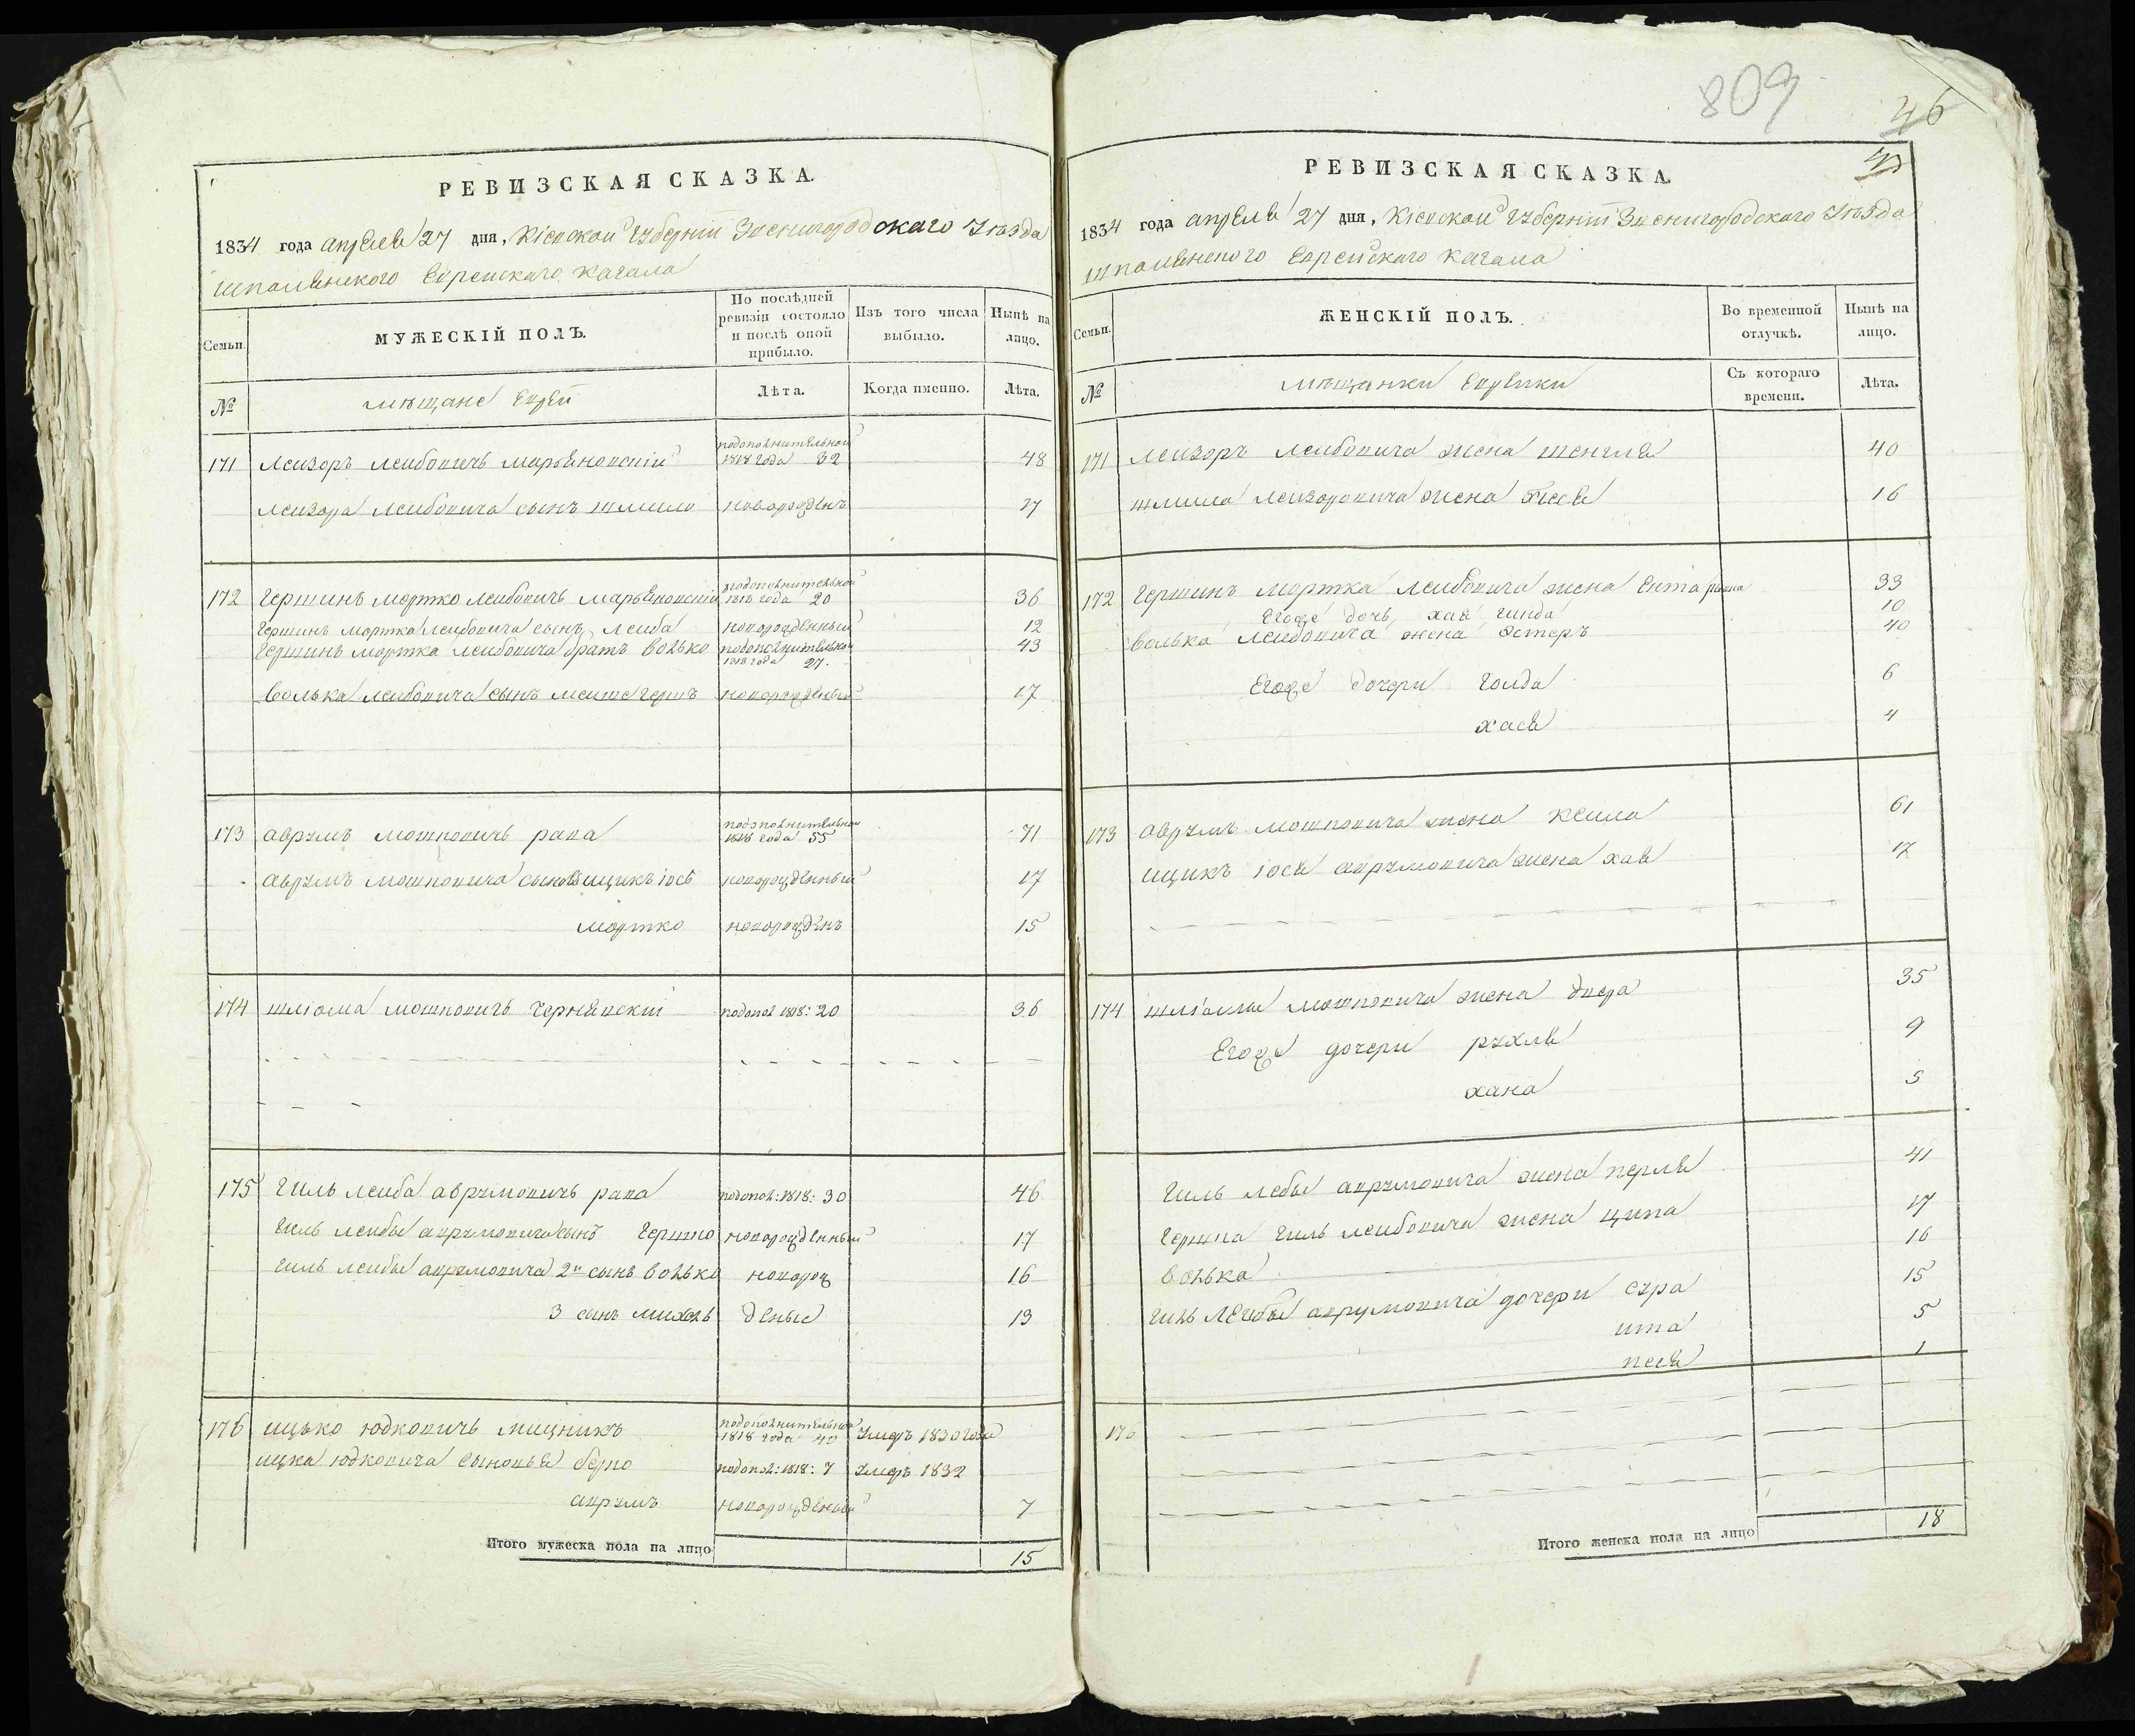 РЕВИЗСКАЯ СКАЗКА.
1834 года апреля 27 дня, Кіевской Губерніи Звенигородскаго Уезда
шполянского Еврейскаго кагала
Семьи
МУЖЕСКІЙ ПОЛЪ.
По послѣдней ревизіи состояло и послѣ оной прибыло.
Изъ того числа выбыло.
Нынѣ на лицо.
№
мѣщане Евреи
Лѣта.
Когда именно.
Лѣта.
171 Лейзоръ Лейбовичь Марьяновскій подополнительной 1818 года 32 48
Лейзора Лейбовича сынъ шлиомо новорожденъ 17
172 Гершинъ Мортко Лейбовичь Марьяновскій подополнительной 1818 года 20 36
Гершинъ Мортка Лейбовича сынъ Лейба новорожденный 12
Гершинъ Мортка Лейбовича братъ Волько подополнительной 1818 года 27. 43
Волька Лейбовича сынъ новорожденный 17
173 аврумъ мошковичь рапа подополнительной 1818 года 55 71
аврумъ мошковича сыновя ицикъ іось новорожденный 17
мортко новорожденъ 15
174 шліома мошковичь Чернявскій подопол 1818: 20 36
175 Гиль лейба аврумовичь рапа подопол: 1818: 30 46
Гиль лейбы аврумовича сынъ Гершко новорожденный 17
Гиль лейбы аврумовича 2й сынъ волько новорож 16
3 сынъ михель деные 13
176 ицько юдковичь мицникъ подополнительной 1818 года 40 Умеръ 1830 года
ицка юдковича сыновья беро подопол: 1818: 7 Умеръ 1832
аврумъ новорожденый 7
Итого мужеска пола на лицо 15
809
46
РЕВИЗСКАЯ СКАЗКА.
1834 года апреля 27 дня, Кіевской Губерніи Звенигородскаго Уезда
шполянского Еврейскаго кагала
Семьи.
ЖЕНСКІЙ ПОЛЪ.
Во временной отлучкѣ.
Нынѣ на лицо.
№
мѣщанки Еврейки
Съ котораго времени.
Лѣта.
171 Лейзоръ Лейбовича жена шенгля 40
шлиома Лейзоровича жена 16
172 Гершинъ мортка Лейбовича жена Ента 33
Егоже дочь хая гинда 10
Волька Лейбовича жена Эстеръ 40
Егоже дочери голда 6
хася 4
173 аврумъ мошковича жена кейла 61
ицикъ іося аврумовича жена хая 17
174 шліомы мошковича жена двера 35
Егоже дочери рухля 9
хана 5
Гиль лебы аврумовича жена перля 41
Гершка Гиль лейбовича жена ципа 17
волька 16
Гиль лейбы аврумовича дочери сура 15
ита 5
песя 1
176
Итого женска пола на лицо 18